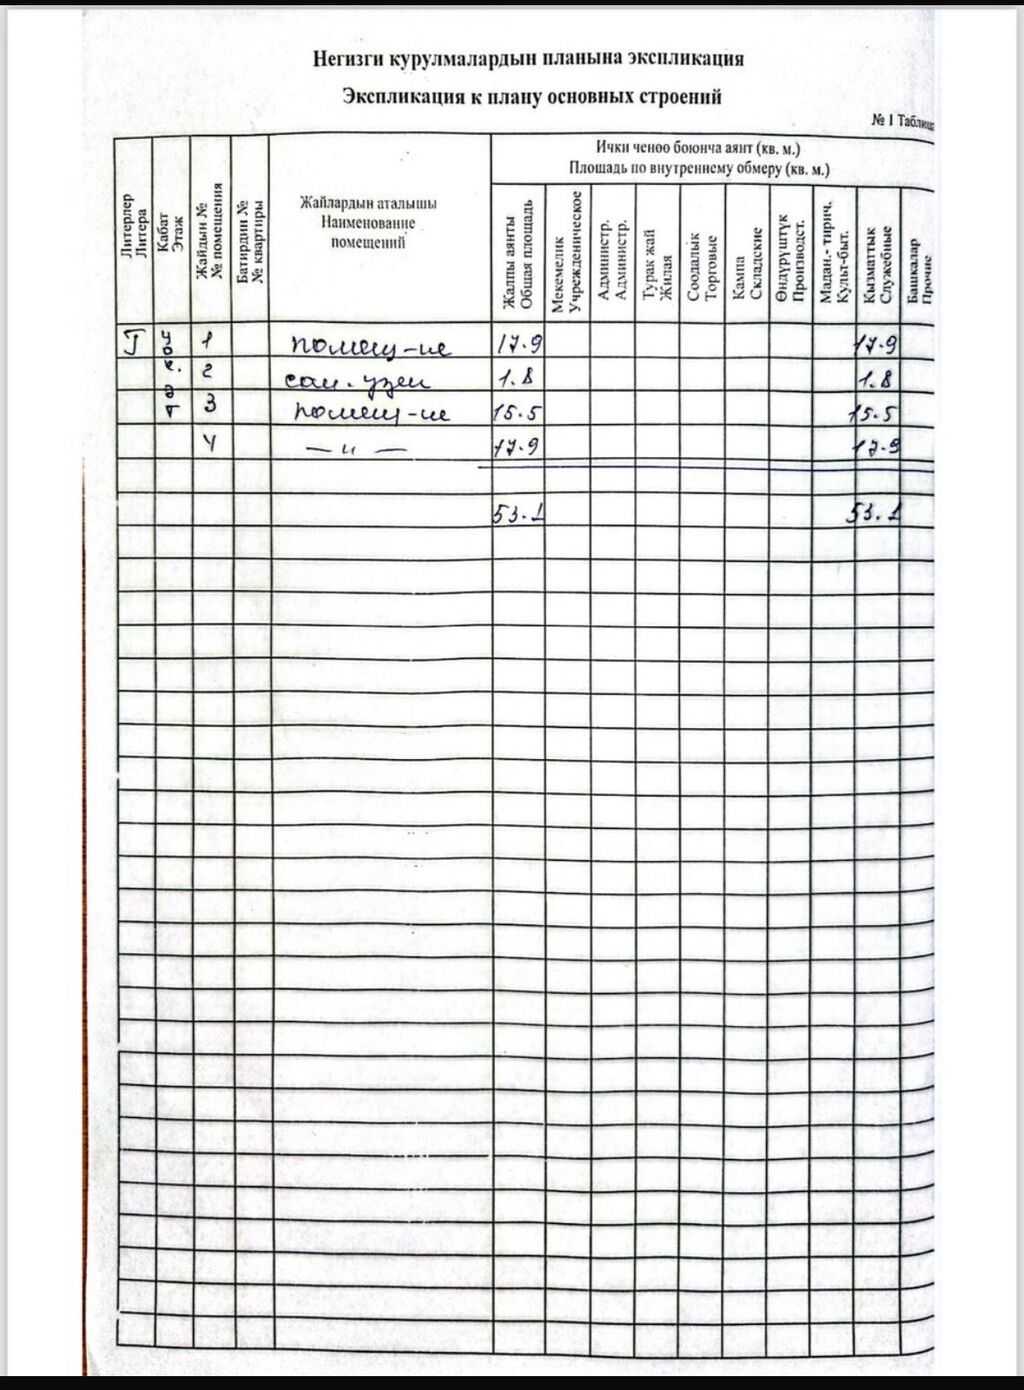 Негизги курулмалардын планына экспликация
Экспликация к плану основных строений
№ 1 Таблица
Литерлер Литера
Кабат Этаж
Жайдын № № помещения
Батирдин № № квартиры
Жайлардын аталышы
Наименование
помещений
Ички ченөө боюнча аянт (кв. м.)
Площадь по внутреннему обмеру (кв. м.)
Жалпы аянты Общая площадь
Мекемелик Учрежденическое
Администр. Администр.
Турак жай Жилая
Соодалык Торговые
Кампа Складские
Өндүрүштүк Производст.
Мадан.- тирич. Культ-быт.
Кызматтык Служебные
Башкалар Прочие
Г 1 помещ-ие 17.9 17.9
2 сан. узел 1.8 1.8
3 помещ-ие 15.5 15.5
4 — и — 17.9 17.9
53.1 53.1